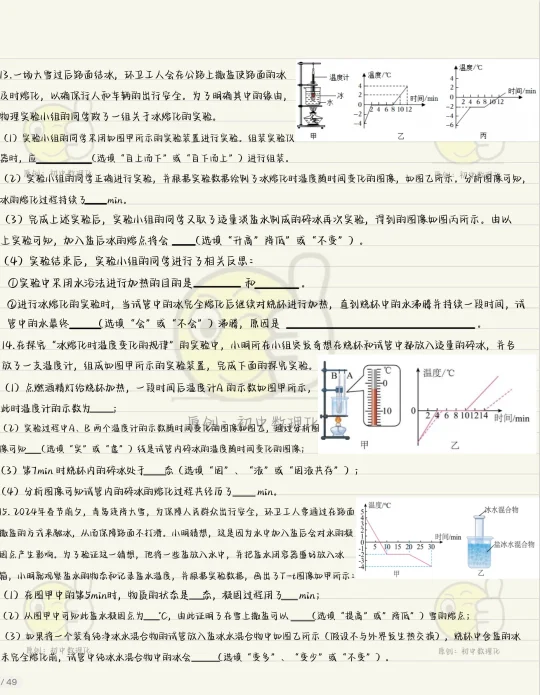 13.一场大雪过后路面结冰，环卫工人会在公路上撒盐使路面的冰
及时熔化，以确保行人和车辆的出行安全。为了明确其中的缘由，
物理实验小组的同学做了一组关于冰熔化的实验。
温度计
冰
水
甲
温度/℃
时间/min
乙
温度/℃
时间/min
丙
（1）实验小组的同学采用如图甲所示的实验装置进行实验。组装实验仪
器时，应（选填“自上而下”或“自下而上”）进行组装。
（2）实验小组的同学正确进行实验，并根据实验数据绘制了冰熔化时温度随时间变化的图像，如图乙所示。分析图像可知，
冰的熔化过程持续了min。
（3）完成上述实验后，实验小组的同学又取了适量淡盐水制成的碎冰再次实验，得到的图像如图丙所示。由以
上实验可知，加入盐后冰的熔点将会（选填“升高”降低”或“不变”）。
（4）实验结束后，实验小组的同学进行了相关反思：
①实验中采用水浴法进行加热的目的是和。
②进行冰熔化的实验时，当试管中的冰完全熔化后继续对烧杯进行加热，直到烧杯中的水沸腾并持续一段时间，试
管中的水最终（选填“会”或“不会”）沸腾，原因是。
14.在探究“冰熔化时温度变化的规律”的实验中，小明所在小组突发奇想在烧杯和试管中都放入适量的碎冰，并各
放了一支温度计，组成如图甲所示的实验装置，完成下面的探究实验。
（1）点燃酒精灯给烧杯加热，一段时间后温度计A的示数如图甲所示，
此时温度计的示数为；
（2）实验过程中A、B两个温度计的示数随时间变化的图像如图乙，通过分析图
像可知（选填“实”或“虚”）线是试管内碎冰的温度随时间变化的图像；
（3）第7min时烧杯内的碎冰处于态（选填“固”、“液”或“固液共存”）；
（4）分析图像可知试管内的碎冰的熔化过程共经历了min。
B A
℃
0
10
甲
温度/℃
2 4 6 8 10 12 14
时间/min
乙
原创：初中数理化
15.2024年春节前夕，青岛连降大雪，为保障人民群众出行安全，环卫工人常通过在路面
撒盐的方式来融冰，从而保障路面不打滑。小明猜想，这是因为水中加入盐后会对水的凝
固点产生影响。为了验证这一猜想，他将一些盐放入水中，并把盐水用容器盛好放入冰
箱，小明观察盐水的物态和记录盐水温度，并根据实验数据，画出了T-t图像如甲所示：
（1）在图甲中的第5min时，物质的状态是态，凝固过程用了min；
（2）从图甲中可知此盐水凝固点为℃，由此证明了在雪上撒盐可以（选填“提高”或“降低”）雪的熔点；
（3）如果将一个装有纯净冰水混合物的试管放入盐冰水混合物中如图乙所示（假设不与外界发生热交换），烧杯中含盐的冰
未完全熔化前，试管中纯冰水混合物中的冰会（选填“变多”、“变少”或“不变”）。
温度/℃
时间/min
5 10 15 20 25 30
甲
冰水混合物
盐冰水混合物
乙
原创：初中数理化
/ 49